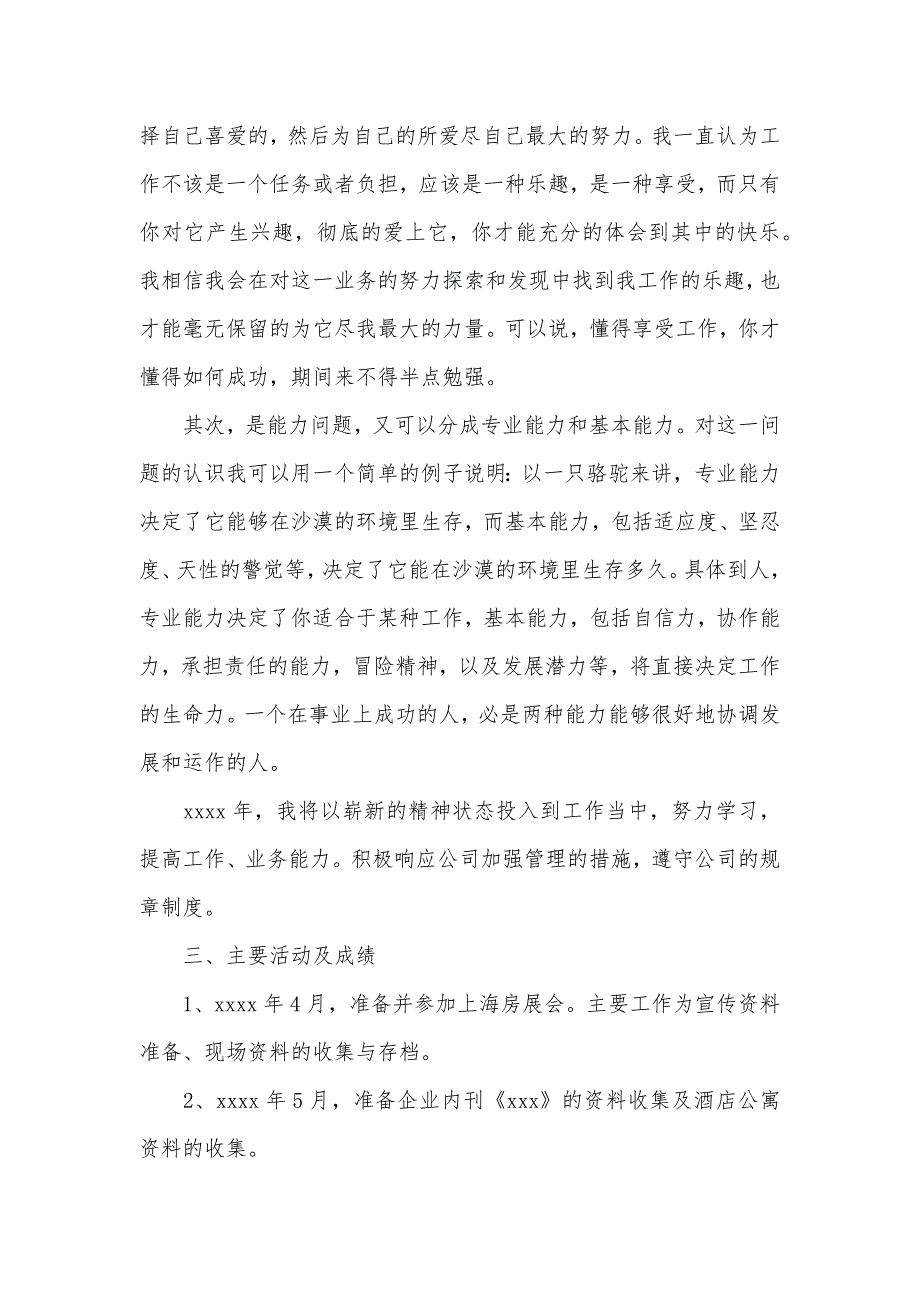 择自己喜爱的，然后为自己的所爱尽自己最大的努力。我一直认为工
作不该是一个任务或者负担，应该是一种乐趣，是一种享受，而只有
你对它产生兴趣，彻底的爱上它，你才能充分的体会到其中的快乐。
我相信我会在对这一业务的努力探索和发现中找到我工作的乐趣，也
才能毫无保留的为它尽我最大的力量。可以说，懂得享受工作，你才
懂得如何成功，期间来不得半点勉强。
其次，是能力问题，又可以分成专业能力和基本能力。对这一问
题的认识我可以用一个简单的例子说明：以一只骆驼来讲，专业能力
决定了它能够在沙漠的环境里生存，而基本能力，包括适应度、坚忍
度、天性的警觉等，决定了它能在沙漠的环境里生存多久。具体到人，
专业能力决定了你适合于某种工作，基本能力，包括自信力，协作能
力，承担责任的能力，冒险精神，以及发展潜力等，将直接决定工作
的生命力。一个在事业上成功的人，必是两种能力能够很好地协调发
展和运作的人。
xxxx 年，我将以崭新的精神状态投入到工作当中，努力学习，
提高工作、业务能力。积极响应公司加强管理的措施，遵守公司的规
章制度。
三、主要活动及成绩
1、xxxx 年 4 月，准备并参加上海房展会。主要工作为宣传资料
准备、现场资料的收集与存档。
2、xxxx 年 5 月，准备企业内刊《xxx》的资料收集及酒店公寓
资料的收集。